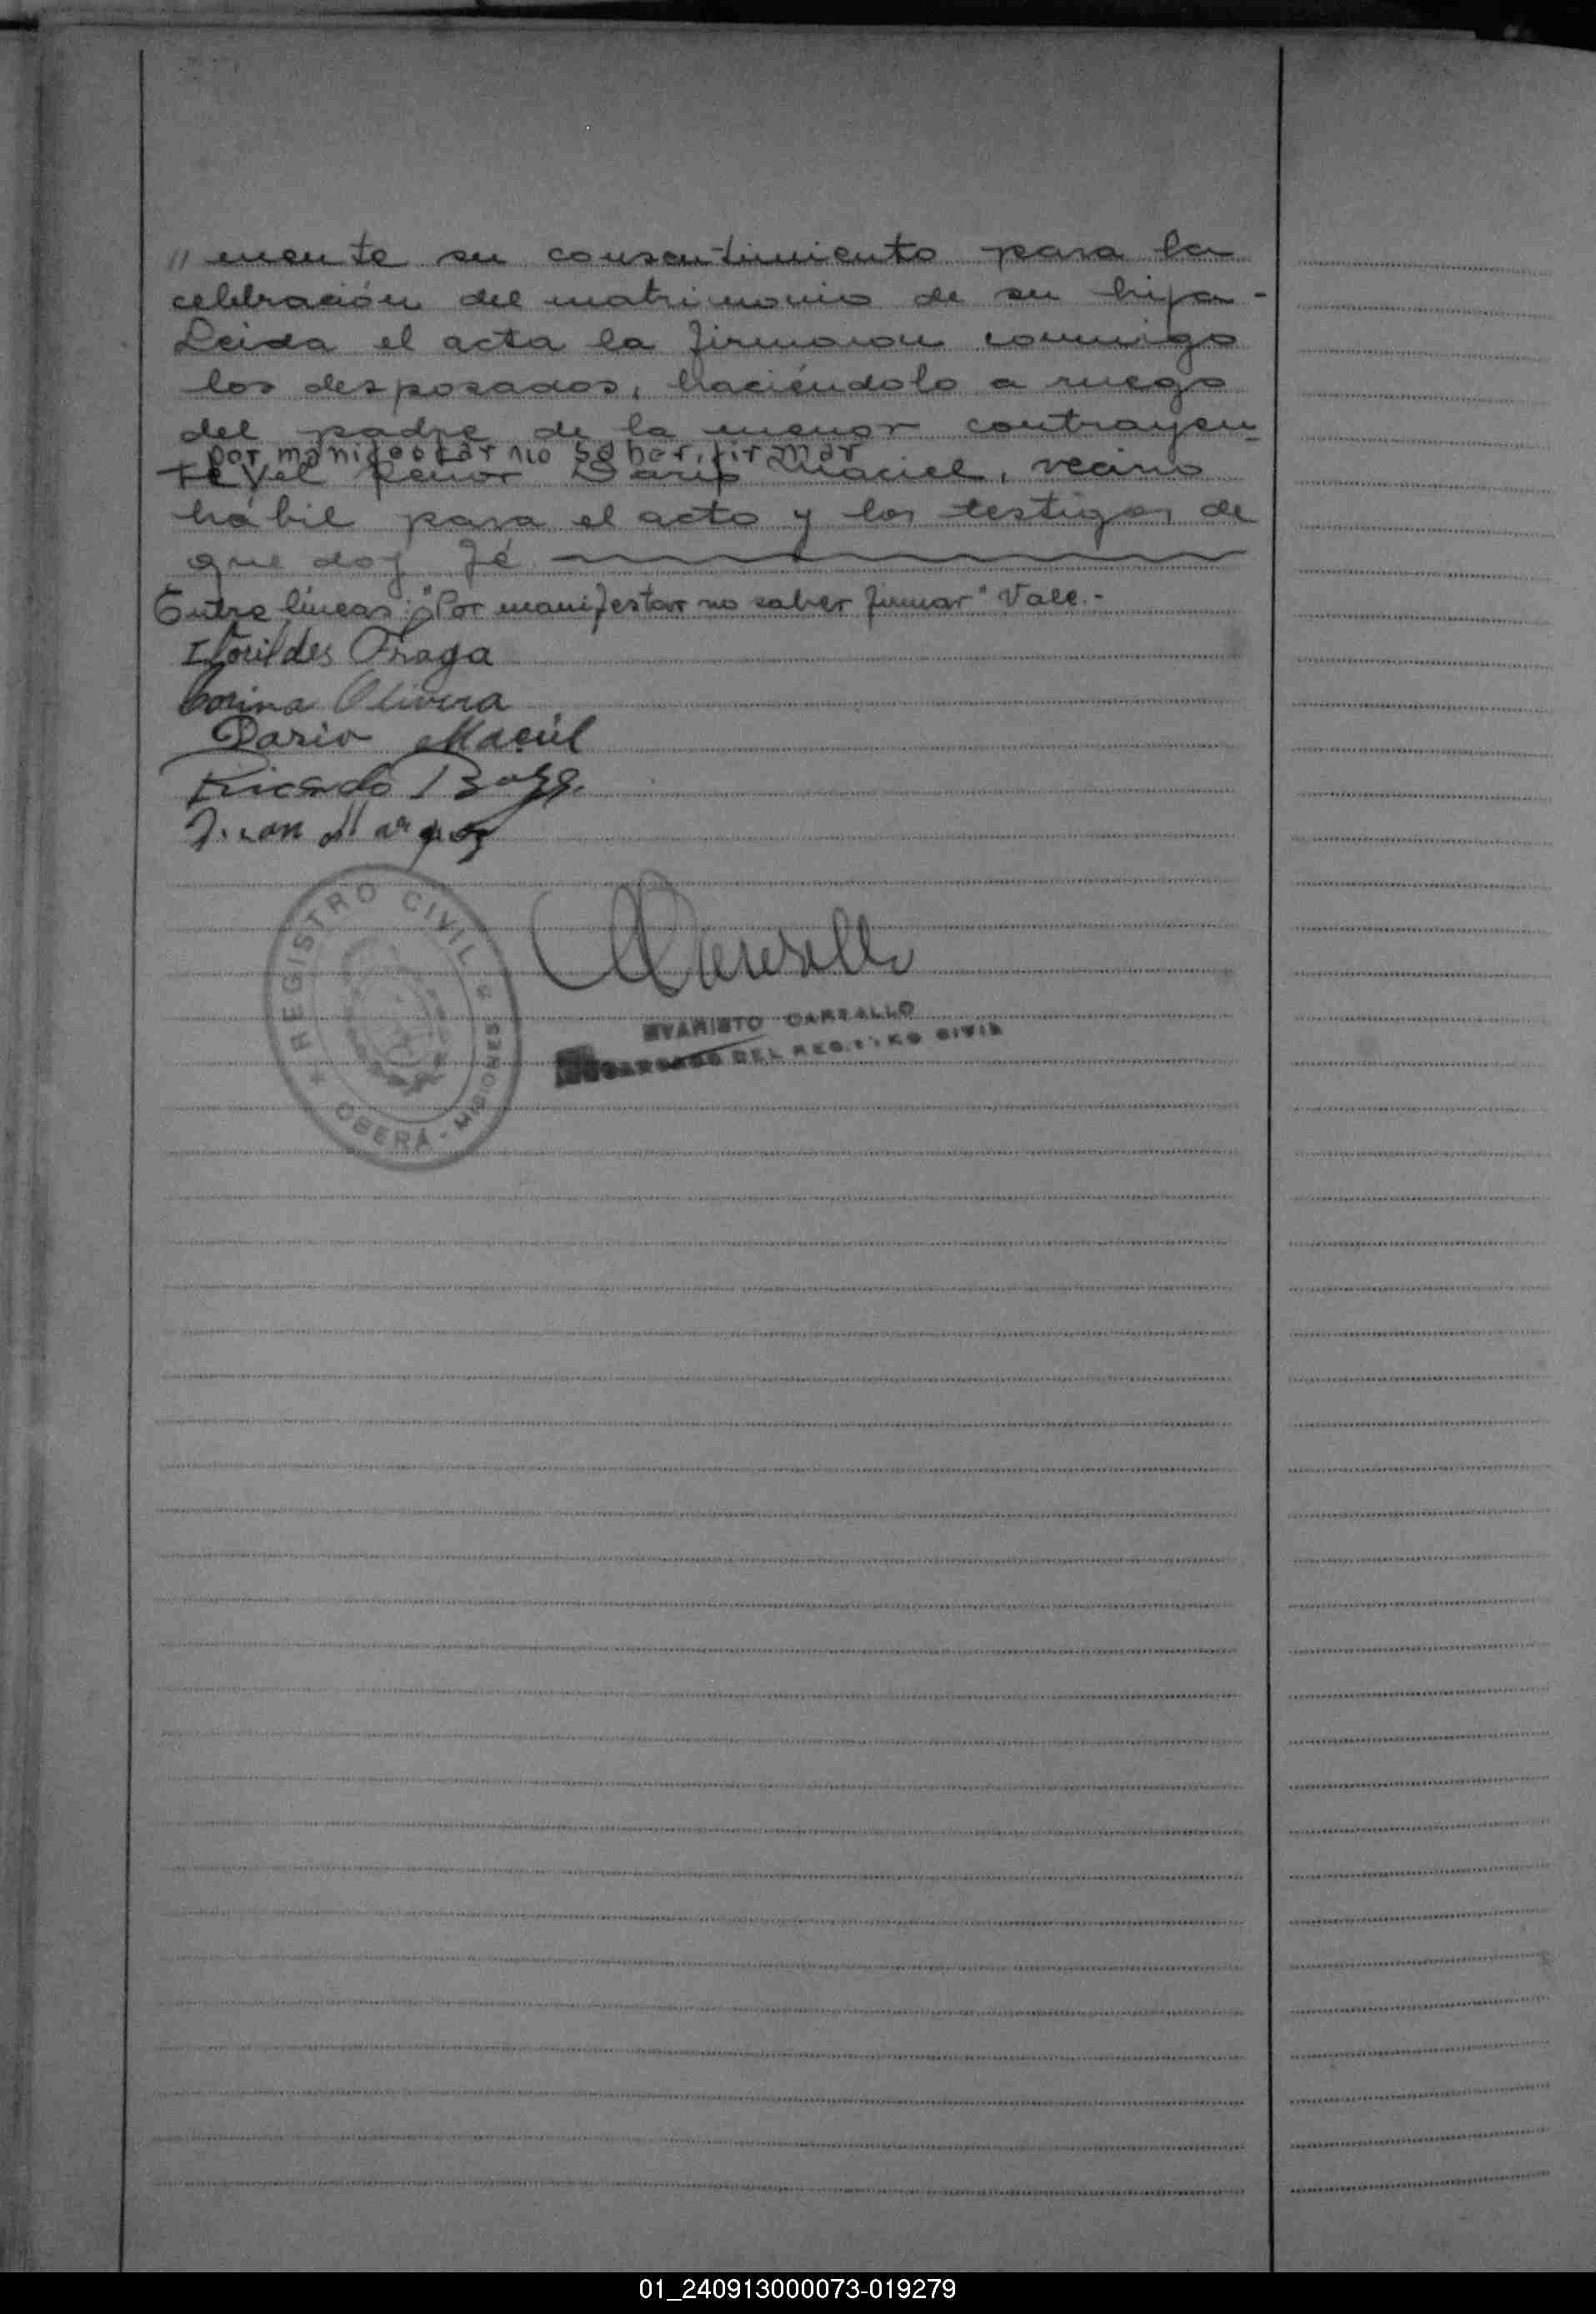 // mente su consentimiento para la
celebración del matrimonio de su hija -
Leida el acta la firmaron conmigo
los desposados, haciéndolo a ruego
del padre de la menor contrayen
por manifestar no saber firmar
te y el señor Dario Maciel, vecino
hábil para el acto y los testigos de
que doy fé
Entre líneas: "Por manifestar no saber firmar" Vale.-
Fraga
Corina Olivera
Dario Maciel
Ricardo
Juan
REGISTRO CIVIL
OBERÁ - MISIONES
EVARISTO CARBALLO
ENCARGADO DEL REGISTRO CIVIL
01_240913000073-019279